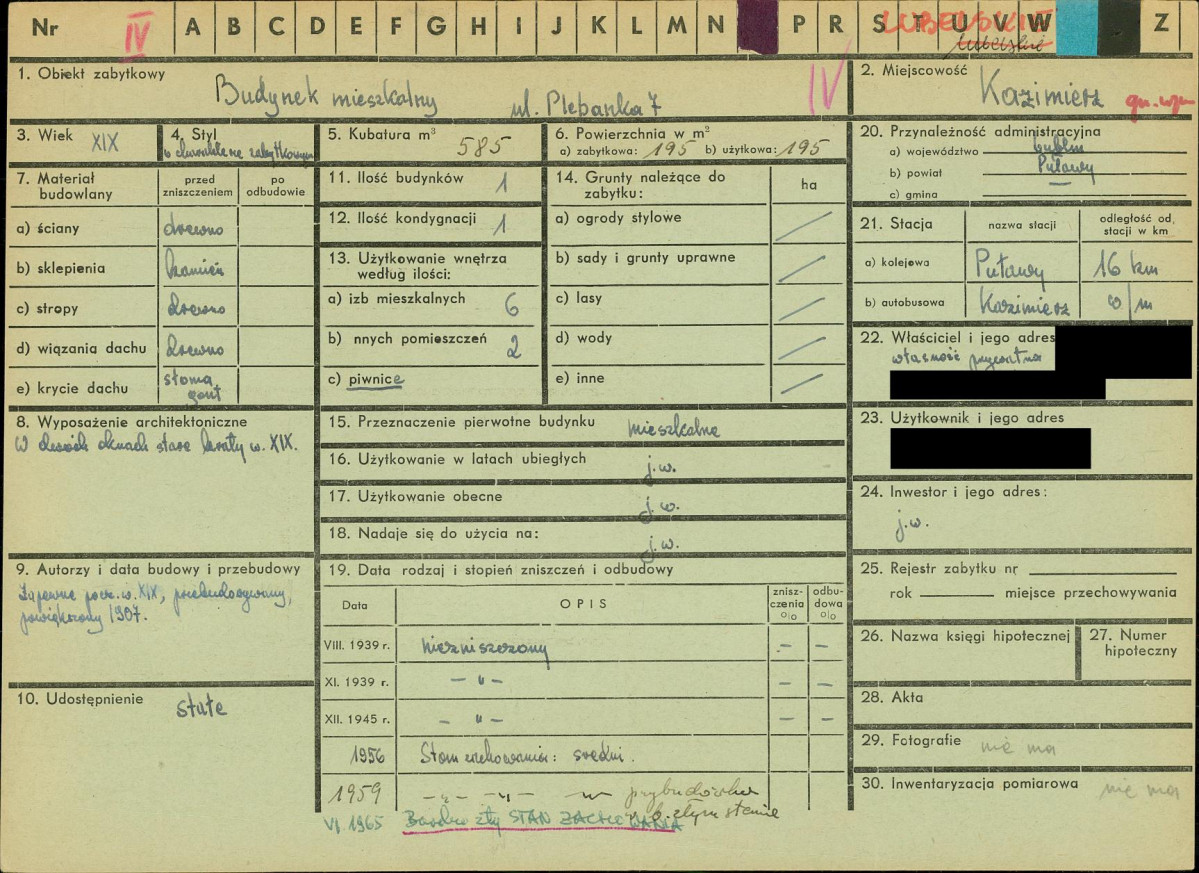 Nr IV A B C D E F G H I J K L M N P R S T U V W Z
LUBELSKIE
lubelskie
1. Obiekt zabytkowy
Budynek mieszkalny ul. Plebanka 7 IV
2. Miejscowość
Kazimierz
3. Wiek XIX
4. Styl
o charakterze zabytkowym
5. Kubatura m³ 585
6. Powierzchnia w m²
a) zabytkowa: 195 b) użytkowa: 195
20. Przynależność administracyjna
a) województwo Lublin
b) powiat Puławy
c) gmina
7. Materiał budowlany
przed zniszczeniem
po odbudowie
a) ściany drewno
b) sklepienia kamień
c) stropy drewno
d) wiązania dachu drewno
e) krycie dachu słoma gont
11. Ilość budynków 1
12. Ilość kondygnacji 1
13. Użytkowanie wnętrza
według ilości:
a) izb mieszkalnych 6
b) nnych pomieszczeń 2
c) piwnice
14. Grunty należące do
zabytku:
ha
a) ogrody stylowe
b) sady i grunty uprawne
c) lasy
d) wody
e) inne
21. Stacja
nazwa stacji
odległość od, stacji w km
a) kolejowa Puławy 16 km
b) autobusowa Kazimierz w/m
22. Właściciel i jego adres
własność prywatna
23. Użytkownik i jego adres
24. Inwestor i jego adres:
j.w.
8. Wyposażenie architektoniczne
W dwóch oknach stare kraty w. XIX.
15. Przeznaczenie pierwotne budynku mieszkalne
16. Użytkowanie w latach ubiegłych j.w.
17. Użytkowanie obecne j.w.
18. Nadaje się do użycia na: j.w.
9. Autorzy i data budowy i przebudowy
Zapewne pocz. w. XIX, przebudowywany,
powiększony 1907.
10. Udostępnienie stałe
19. Data rodzaj i stopień zniszczeń i odbudowy
Data
OPIS
znisz-czenia o/o
odbu-dowa o/o
VIII. 1939 r. niezniszczony – –
XI. 1939 r. – „ – – –
XII. 1945 r. – „ – – –
1956 Stan zachowania: średni.
1959 –„– –„– –„– przybudówka
w b. złym stanie
VI. 1965 Bardzo zły STAN ZACHOWANIA
25. Rejestr zabytku nr
rok miejsce przechowywania
26. Nazwa księgi hipotecznej
27. Numer
hipoteczny
28. Akta
29. Fotografie nie ma
30. Inwentaryzacja pomiarowa nie ma